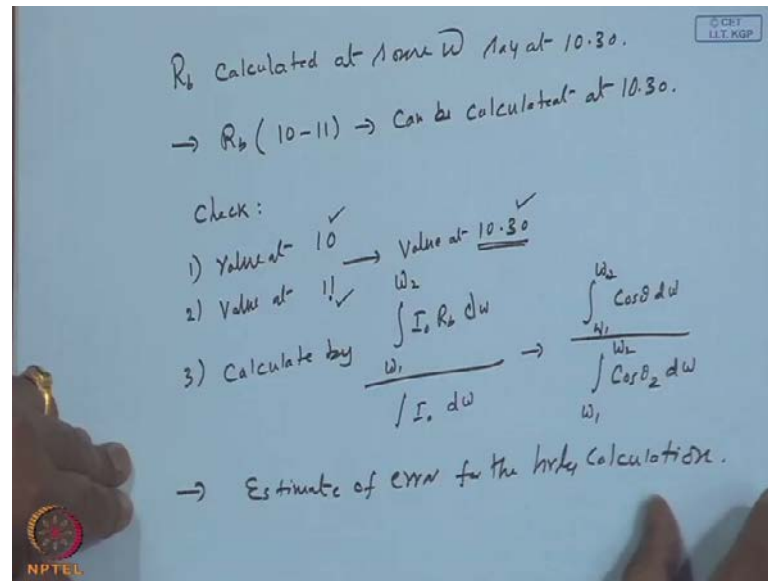 © CET
I.I.T. KGP
R_b Calculated at some ω̄ say at 10.30.
→ R_b ( 10-11) → Can be calculated at 10.30.
Check:
1) Value at 10 ✓ → Value at 10.30 ✓
2) Value at 11 ✓
3) Calculate by ∫_{ω₁}^{ω₂} I₀ R_b dω / ∫ I₀ dω → ∫_{ω₁}^{ω₂} Cosθ dω / ∫_{ω₁}^{ω₂} Cosθ_z dω
→ Estimate of error for the hrly calculation.
NPTEL